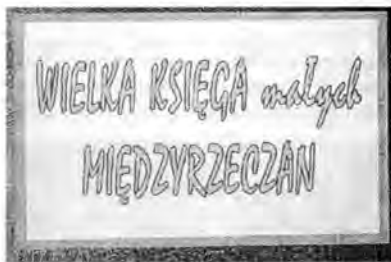 WIELKA KSIĘGA małych
MIĘDZYRZECZAN